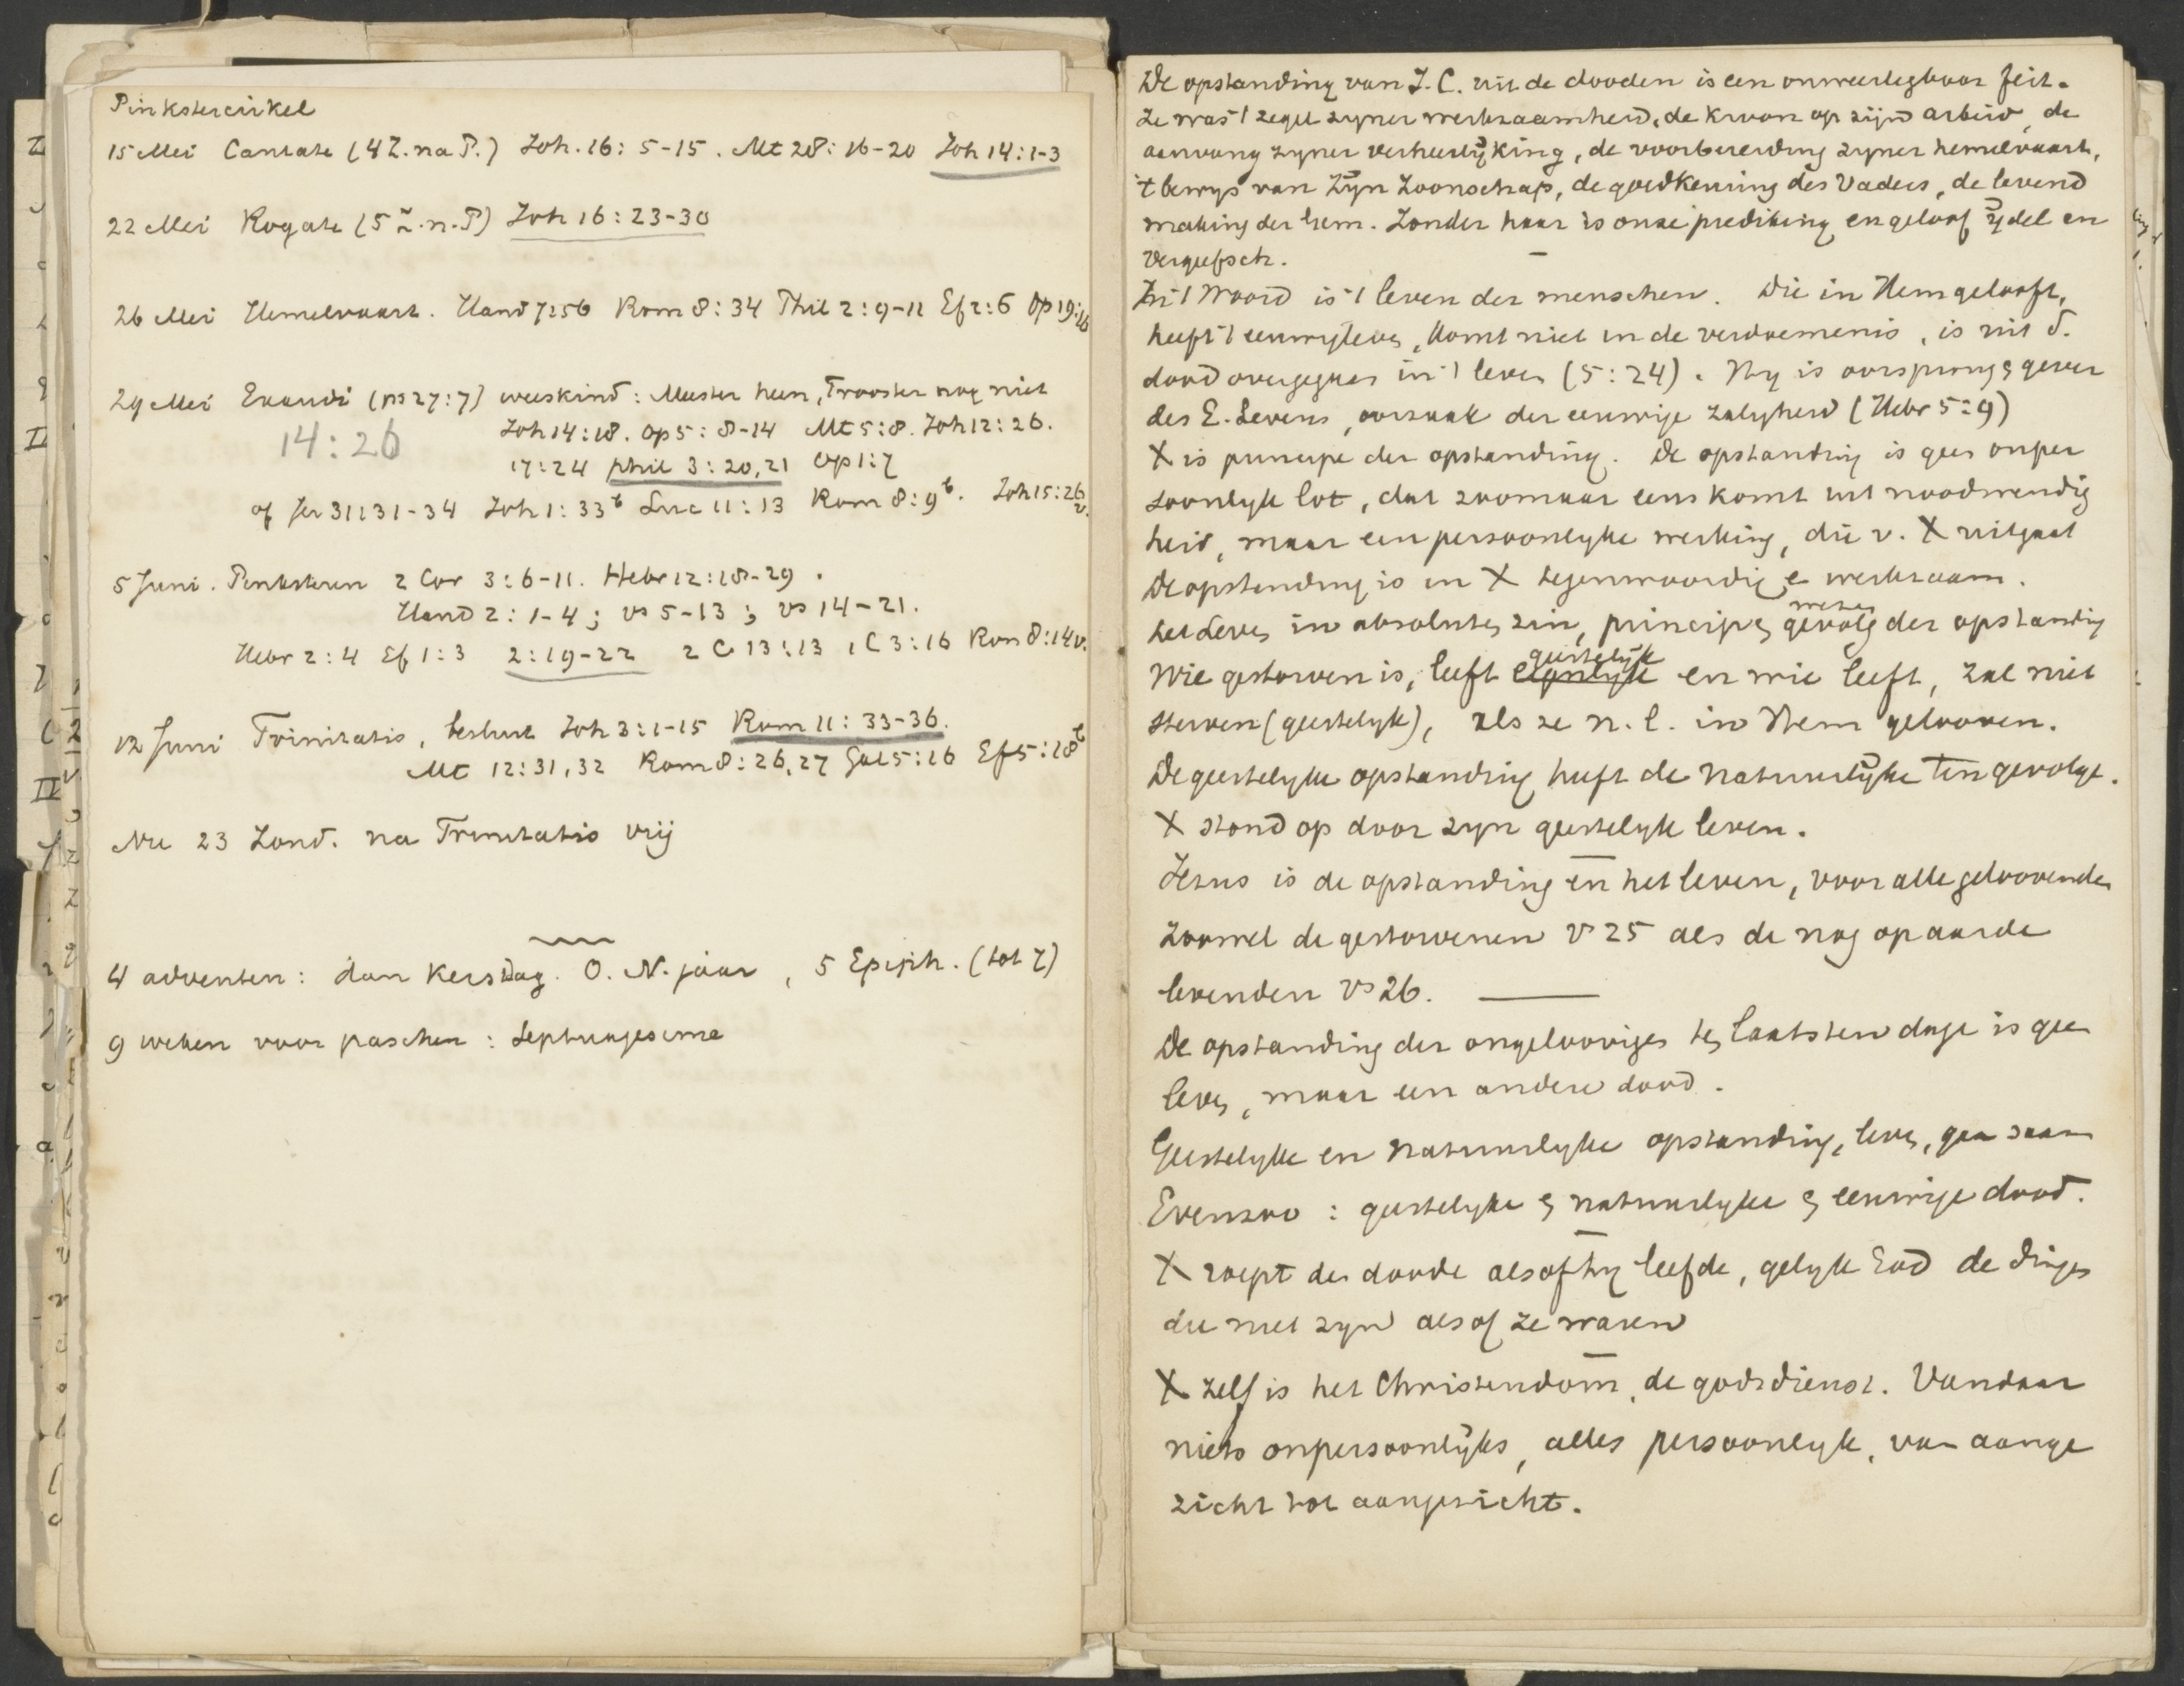 Pinkstercirkel
15 Mei Cantate (4 Z. na P.) Joh. 16: 5-15. Mt 28: 16-20 Joh 14: 1-3
22 Mei Rogate (5 Z. n. P) Joh 16: 23-30
26 Mei Hemelvaart. Hand 7:56 Rom 8: 34 Phil 2: 9-11 Ef 2: 6 Op 19:
29 Mei Exaudi (ps 27: 7) weeskind: Meester heen, Trooster nog niet
14: 26 Joh 14: 18. Op 5: 8-14 Mt 5: 8. Joh 12: 26.
17: 24 Phil 3: 20, 21 Op 1: 7
of Jer 31: 31-34 Joh 1: 33b Luc 11: 13 Rom 8: 9b. Joh 15: 26 v.
5 Juni. Pinksteren 2 Cor 3: 6-11. Hebr 12: 18-29.
Hand 2: 1-4; vs 5-13; vs 14-21.
Hebr 2: 4 Ef 1: 3 2: 19-22 2 C 13: 13 1 C 3: 16 Rom 8: 14 v.
12 Juni Trinitatis, besluit Joh 3: 1-15 Rom 11: 33-36.
Mt 12: 31, 32 Rom 8: 26, 27 Gal 5: 16 Ef 5: 18b
Nu 23 Zond. na Trinitatis vrij
4 adventen: dan Kerstdag. O. N. jaar, 5 Epiph. (tot 7)
9 weken voor paschen: Septuagesima
De opstanding van J. C. uit de dooden is een onweerlegbaar feit.
Ze was 't zegel zyner werkzaamheid, de kroon op zijn arbeid, de
aanvang zyner verheerlijking, de voorbereiding zyner hemelvaart,
't bewys van Zijn Zoonschap, de goedkeuring des Vaders, de levend
making der hem. Zonder haar is onze prediking en geloof ijdel en
vergeefsch.
In 't Woord is 't leven der menschen. Die in Hem gelooft,
heeft 't eeuwig leven, komt niet in de verdoemenis, is uit d.
dood overgegaan in 't leven (5: 24). Hy is oorsprong & gever
des E. Levens, oorzaak der eeuwige zaligheid (Hebr 5: 9)
X is principe der opstanding. De opstanding is geen onper
soonlyk lot, dat zoomaar eens komt uit noodwendig
heid, maar een persoonlyke werking, die v. X uitgaat
De opstanding is in X tegenwoordig & werkzaam.
wezen
het Leven in absoluten zin, principe & gevolg der opstanding
geestelijk
Wie gestorven is, leeft eigenlyk en wie leeft, zal niet
sterven (geestelyk), als ze n. l. in Hem gelooven.
De geestelyke opstanding heeft de natuurlijke ten gevolge.
X stond op door zyn geestelyk leven.
Jezus is de opstanding en het leven, voor alle geloovenden
zoowel de gestorvenen v 25 als de nog op aarde
levenden vs 26.
De opstanding der ongeloovigen ten laatsten dage is geen
leven, maar een andere dood.
Geestelyke en natuurlyke opstanding, leven, gaan saam
Evenzoo: geestelyke & natuurlyke & eeuwige dood.
X roept den doode alsof hy leefde, gelyk God de dingen
die niet zyn alsof ze waren
X zelf is het Christendom, de godsdienst. Vandaar
niets onpersoonlijks, alles persoonlyk, van aange
zicht tot aangezicht.